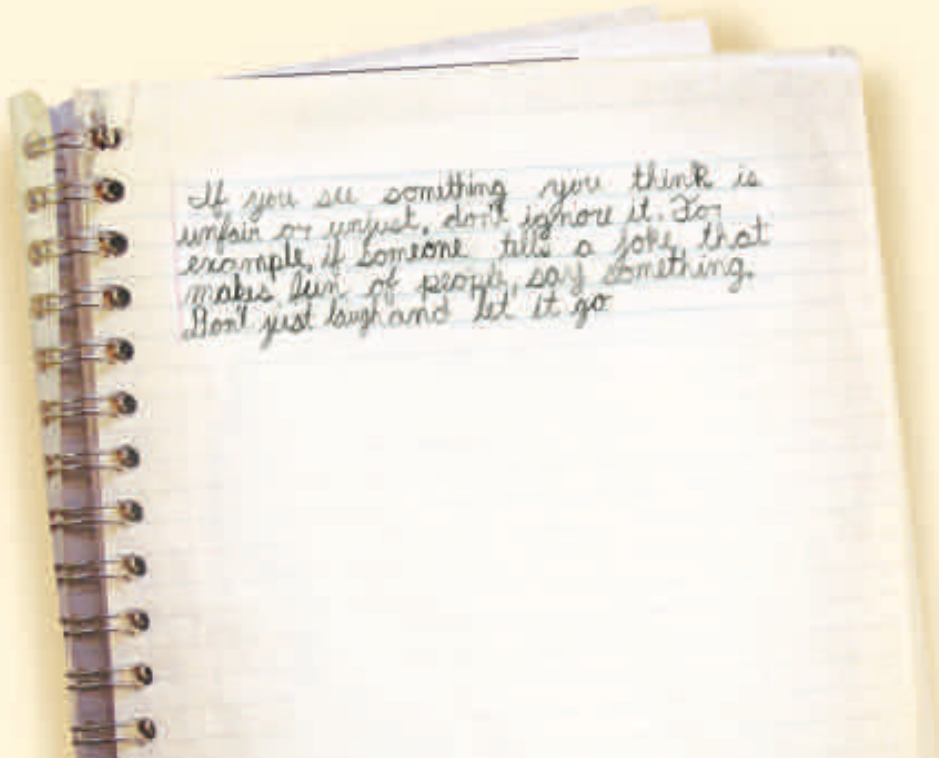 If you see somithing you think is
unfair or unjust, don't ignore it. For
example, if someone tells a joke that
makes fun of people, say something.
Don't just laugh and let it go